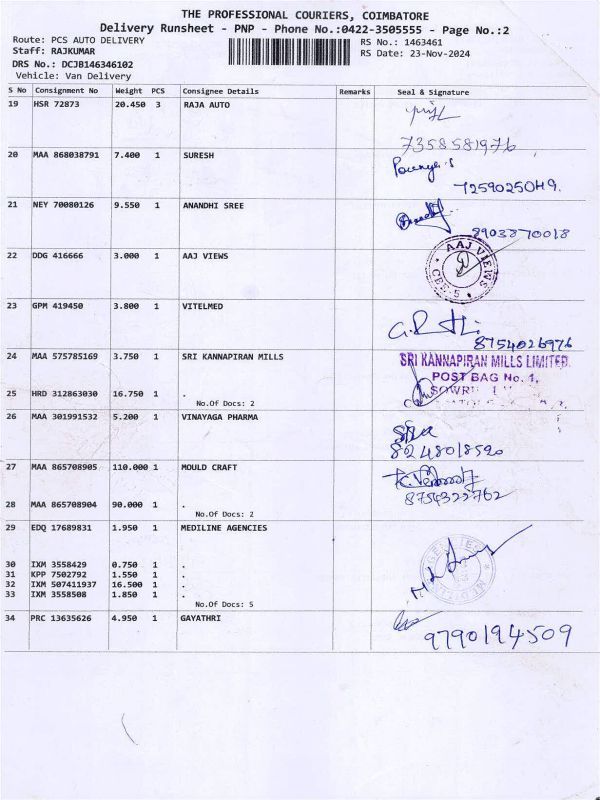 THE PROFESSIONAL COURIERS, COIMBATORE
Delivery Runsheet - PNP - Phone No.:0422-3505555 - Page No.:2
Route: PCS AUTO DELIVERY RS No.: 1463461
Staff: RAJKUMAR RS Date: 23-Nov-2024
DRS No.: DCJB146346102
Vehicle: Van Delivery
S No Consignment No Weight PCS Consignee Details Remarks Seal & Signature
19 HSR 72873 20.450 3 RAJA AUTO
7358581976
20 MAA 868038791 7.400 1 SURESH
7259025049.
21 NEY 70080126 9.550 1 ANANDHI SREE
8903870018
22 DDG 416666 3.000 1 AAJ VIEWS
AAJ VIEWS
CBE-5
23 GPM 419450 3.800 1 VITELMED
8754026976
24 MAA 575785169 3.750 1 SRI KANNAPIRAN MILLS
SRI KANNAPIRAN MILLS LIMITED.
POST BAG No. 1,
25 HRD 312863030 16.750 1 .
No.Of Docs: 2
26 MAA 301991532 5.200 1 VINAYAGA PHARMA
8248018520
27 MAA 865708905 110.000 1 MOULD CRAFT
8754322762
28 MAA 865708904 90.000 1 .
No.Of Docs: 2
29 EDQ 17689831 1.950 1 MEDILINE AGENCIES
30 IXM 3558429 0.750 1 .
31 KPP 7502792 1.550 1 .
32 IXM 507411937 16.500 1 .
33 IXM 3558508 1.850 1 .
No.Of Docs: 5
34 PRC 13635626 4.950 1 GAYATHRI
9790194509